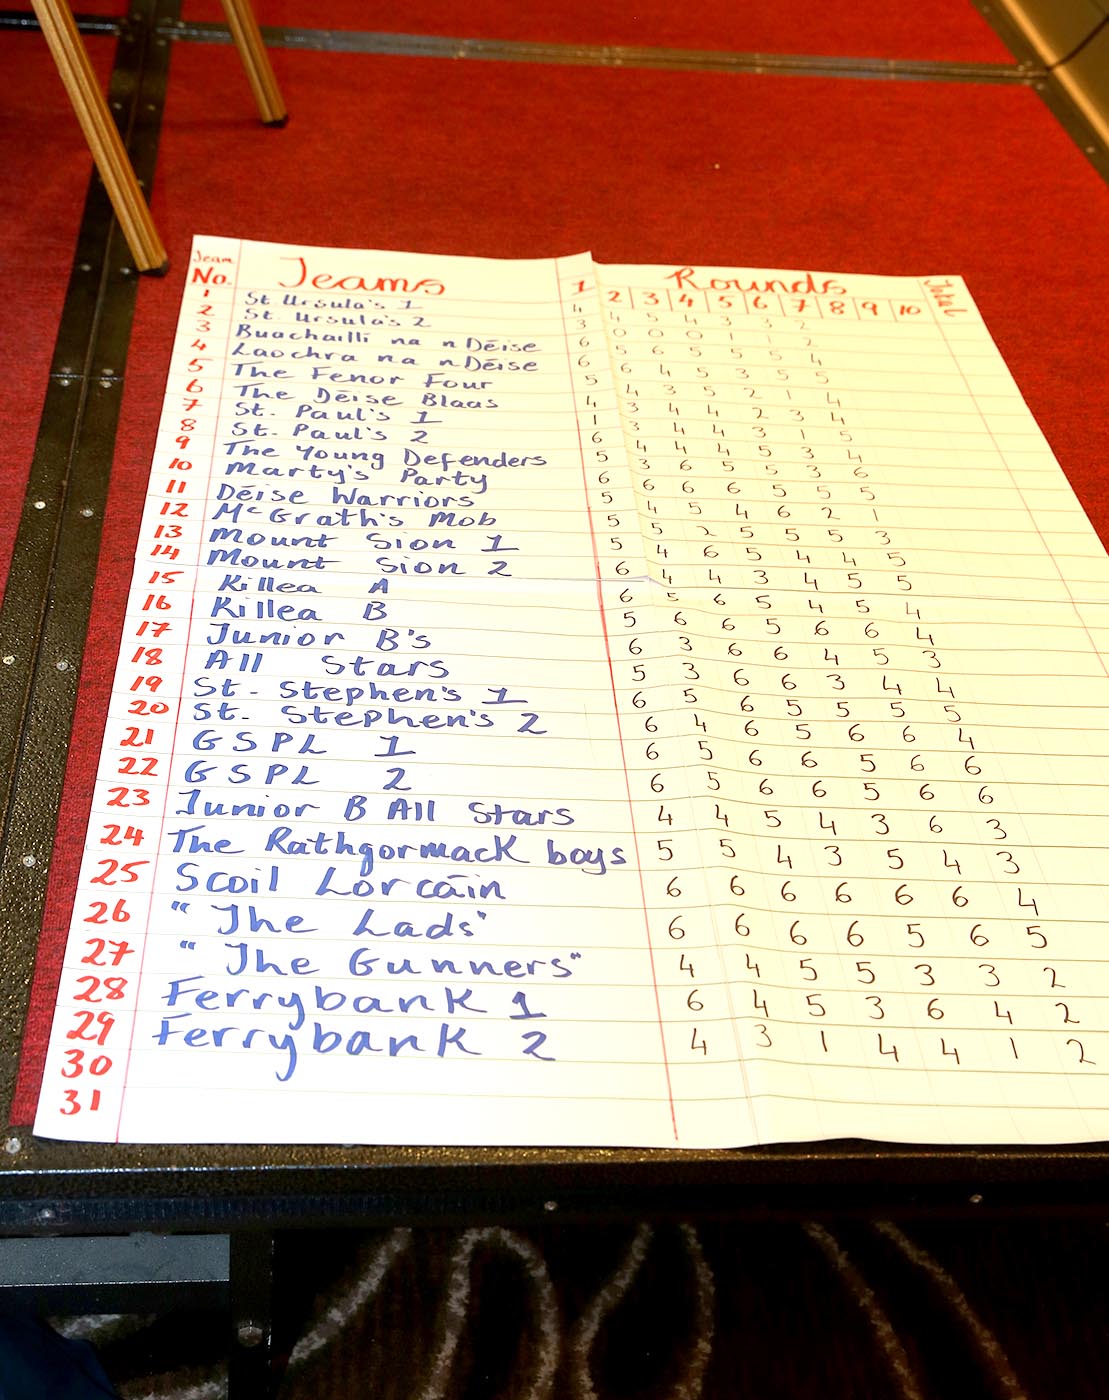 Team No. Teams 1 Rounds Total
2 3 4 5 6 7 8 9 10
1 St Ursula's 1 4 4 5 4 3 3 2
2 St Ursula's 2 3 0 0 0 1 1 2
3 Buachaillí na nDéise 6 5 6 5 5 5 4
4 Laochra na nDéise 6 6 4 5 3 5 5
5 The Fenor Four 5 4 3 5 2 1 4
6 The Déise Blaas 4 3 4 4 2 3 4
7 St. Paul's 1 1 3 4 4 3 1 5
8 St. Paul's 2 6 4 4 4 5 3 4
9 The Young Defenders 5 3 6 5 5 3 6
10 Marty's Party 6 6 6 6 5 5 5
11 Déise Warriors 5 4 5 4 6 2 1
12 McGrath's Mob 5 5 2 5 5 5 3
13 Mount Sion 1 5 4 6 5 4 4 5
14 Mount Sion 2 6 4 4 3 4 5 5
15 Killea A 6 5 6 5 4 5 4
16 Killea B 5 6 6 5 6 6 4
17 Junior B's 6 3 6 6 4 5 3
18 All Stars 5 3 6 6 3 4 4
19 St. Stephen's 1 6 5 6 5 5 5 5
20 St. Stephen's 2 6 4 6 5 6 6 4
21 GSPL 1 6 5 6 6 5 6 6
22 GSPL 2 6 5 6 6 5 6 6
23 Junior B All Stars 4 4 5 4 3 6 3
24 The Rathgormack boys 5 5 4 3 5 4 3
25 Scoil Lorcáin 6 6 6 6 6 6 4
26 "The Lads" 6 6 6 6 5 6 5
27 "The Gunners" 4 4 5 5 3 3 2
28 Ferrybank 1 6 4 5 3 6 4 2
29 Ferrybank 2 4 3 1 4 4 1 2
30
31